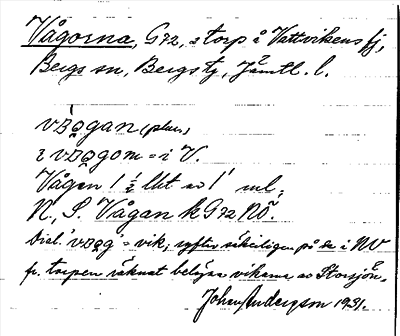 Vågorna, G72, 2 torp å Vattvikens fj,
Bergs sn, Bergs tg, Jämtl. l.
vågan (plur.)
i vågom = i V.
Vågen / ½ lht av 1/ ml.
N., S. Vågan k G72 NÖ.
Dial. 'våg' = vik; syftar säkerligen på de i NV
fr. torpen räknat belägna vikarna av Storsjön.
Johan Anderson 1931.